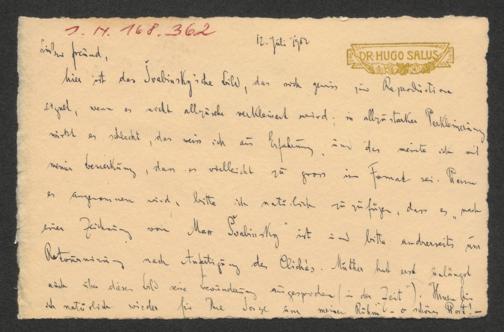 J. N. 168.362
12. Juli 1902
DR HUGO SALUS
Lieber Freund,
hier ist das Švabinsky'sche Bild, das sich gewiss zur Reproduction
eignet, wenn es nicht allzusehr verkleinert wird; in allzustarker Verkleinerung
wirkt es schlecht, das weiss ich aus Erfahrung, und das meinte ich mit
meiner Bemerkung, dass es vielleicht zu gross im Format sei. Wenn
es angenommen wird, bitte ich natürlich zuzufügen, dass es "nach
einer Zeichnung von Max Švabinsky" ist und bitte andrerseits um
Retournierung nach Anfertigung des Clichés. Muther hat erst unlängst
auch über dieses Bild seine Bewunderung ausgesprochen (in der "Zeit"). Ihnen bin
ich natürlich wieder für Ihre Sorge um meinen Ruhm - o schönes Wort! -